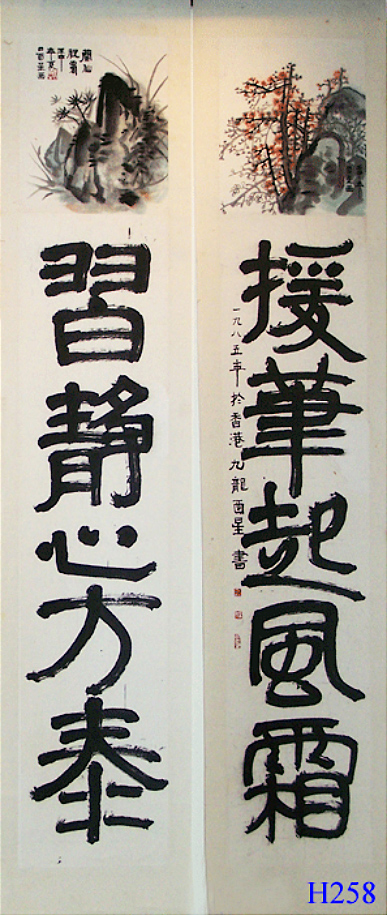 援筆起風霜
一九八五年於香港九龍酉星書
習靜心方泰
H258